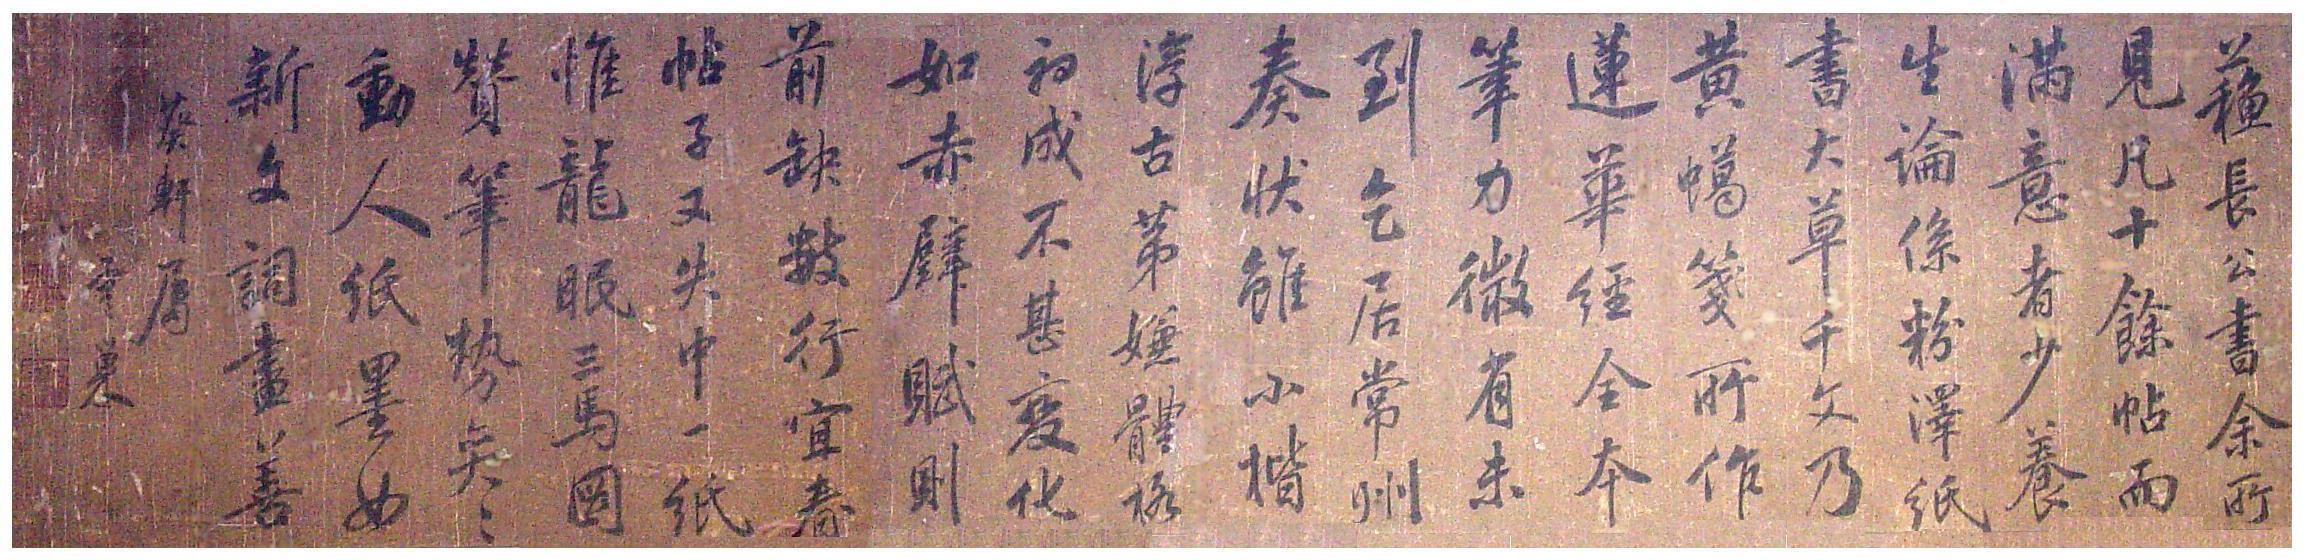 蘇長公書余所
見凡十餘帖而
滿意者少養
生論係粉澤紙
書大草千文乃
黄蠟箋所作
蓮華經全本
筆力微有未
到乞居常州
奏狀雖小楷
淳古第嫌體格
初成不甚變化
如赤壁賦則
前缺數行宜春
帖子又失中一紙
惟龍眠三馬圖
贊筆勢奕〻
動人紙墨如
新文詞盡善
葵軒屬